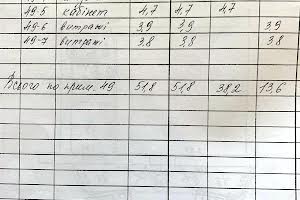 49-5 кабінет 4,7 4,7 4,7
49-6 витражі 3,9 3,9 3,9
49-7 витражі 3,8 3,8 3,8
Всього по прим. 49 51,8 51,8 38,2 13,6